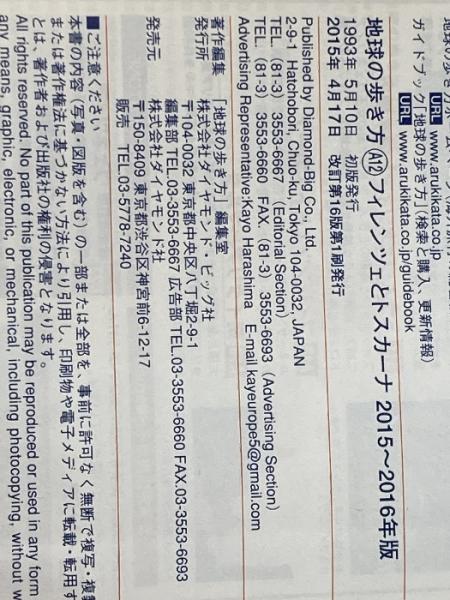 URL www.arukikata.co.jp
ガイドブック「地球の歩き方」(検索と購入、更新情報)
URL www.arukikata.co.jp/guidebook
地球の歩き方 A12 フィレンツェとトスカーナ 2015~2016年版
1993年 5月10日 初版発行
2015年 4月17日 改訂第16版第1刷発行
Published by Diamond-Big Co., Ltd.
2-9-1 Hatchobori, Chuo-ku, Tokyo 104-0032, JAPAN
TEL. (81-3) 3553-6667 (Editorial Section)
TEL. (81-3) 3553-6660 FAX. (81-3) 3553-6693 (Advertising Section)
Advertising Representative:Kayo Harashima E-mail kayeurope5@gmail.com
著作編集 「地球の歩き方」編集室
発行所 株式会社ダイヤモンド・ビッグ社
〒104-0032 東京都中央区八丁堀2-9-1
編集部 TEL.03-3553-6667 広告部 TEL.03-3553-6660 FAX.03-3553-6693
発売元 株式会社ダイヤモンド社
〒150-8409 東京都渋谷区神宮前6-12-17
販売 TEL.03-5778-7240
■ご注意ください
本書の内容(写真・図版を含む)の一部または全部を、事前に許可なく無断で複写・複製
または著作権法に基づかない方法により引用し、印刷物や電子メディアに転載・転用す
とは、著作者および出版社の権利の侵害となります。
All rights reserved. No part of this publication may be reproduced or used in any form
any means, graphic, electronic, or mechanical, including photocopying, without w